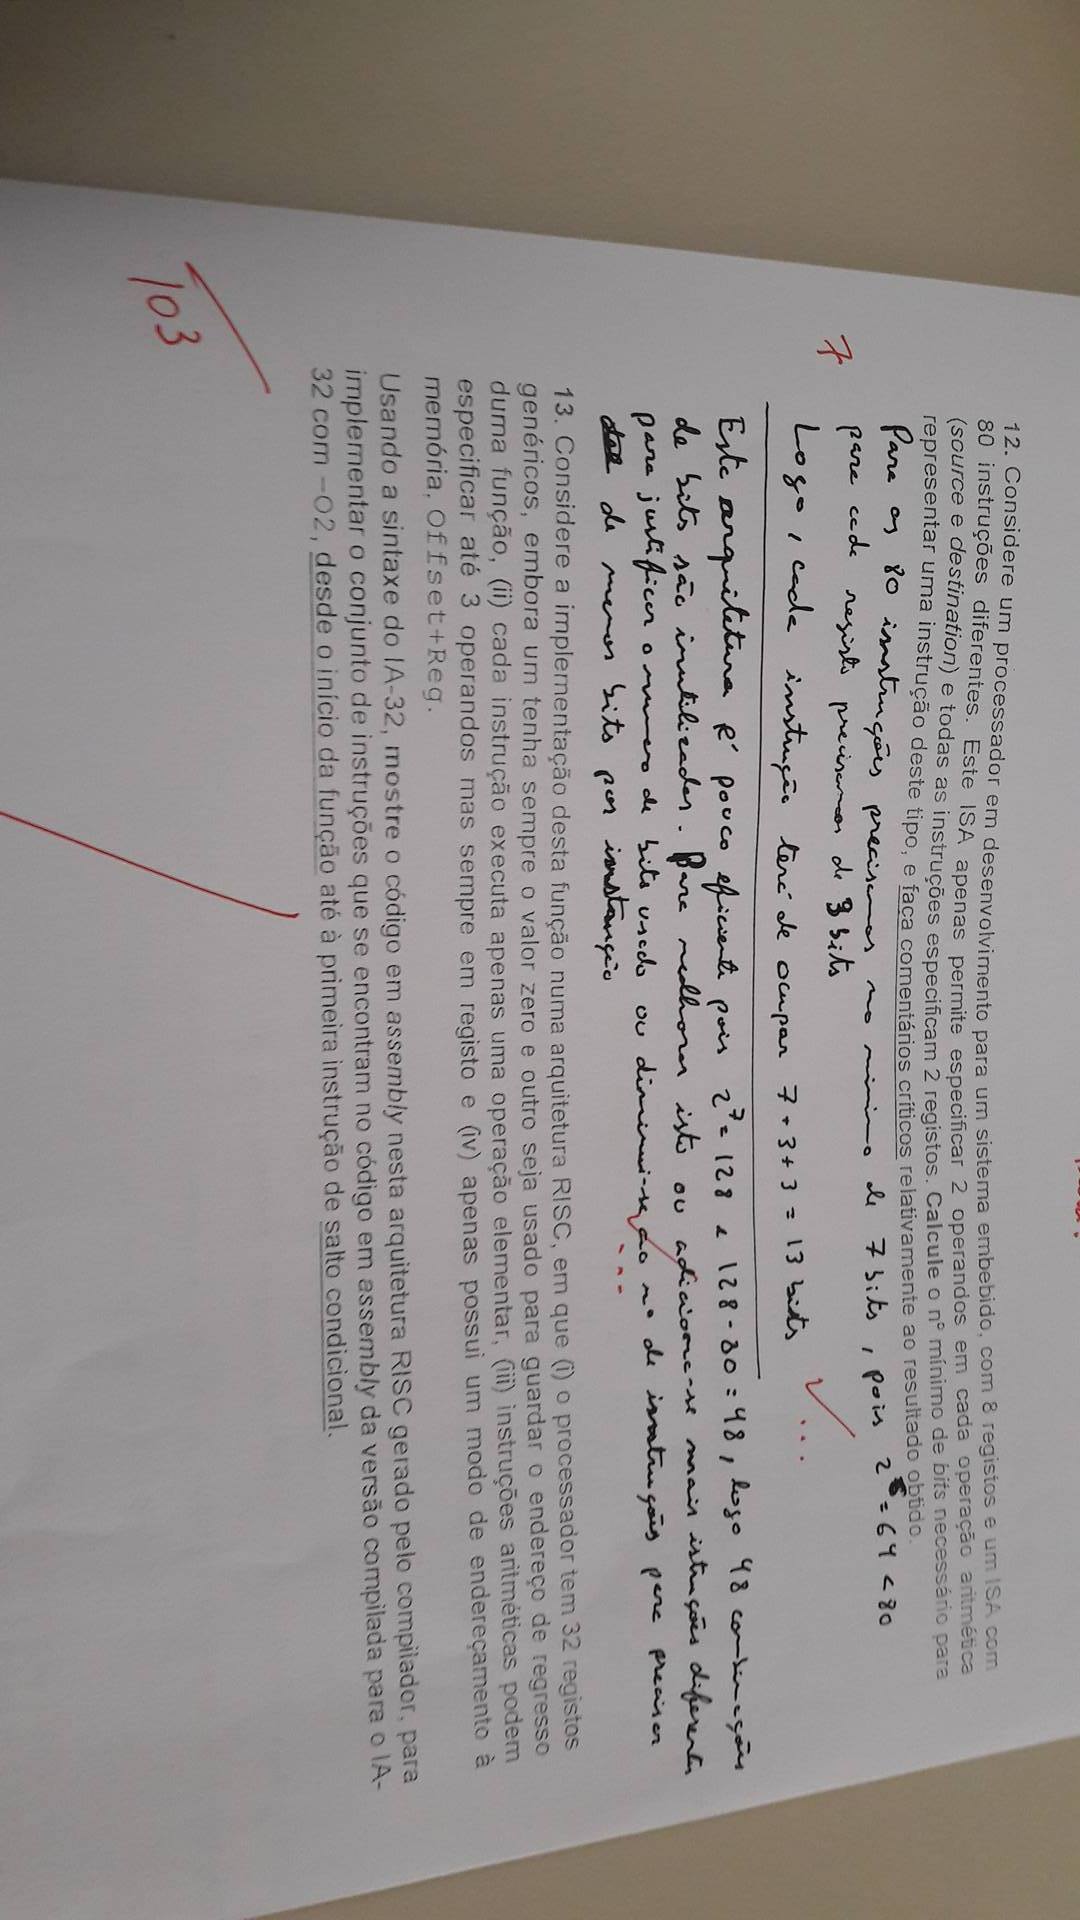 12. Considere um processador em desenvolvimento para um sistema embebido, com 8 registos e um ISA com
80 instruções diferentes. Este ISA apenas permite especificar 2 operandos em cada operação aritmética
(source e destination) e todas as instruções especificam 2 registos. Calcule o nº mínimo de bits necessário para
representar uma instrução deste tipo, e faça comentários críticos relativamente ao resultado obtido.
Para as 80 instruções precisamos no minimo de 7 bits, pois 2^6 = 64 < 80
para cada registo precisamos de 3 bits
7
Logo, cada instrução terá de ocupar 7+3+3 = 13 bits
✓...
Este arquitetura é pouco eficiente pois 2^7 = 128 e 128-80 = 48, logo 48 combinações
de bits são inutilizadas. Para melhorar isto ou adiciona-se mais istruções diferentes
para justificar o numero de bits usado ou diminui-se ao nº de instruções para precisar
de menos bits por instrução
...
13. Considere a implementação desta função numa arquitetura RISC, em que (i) o processador tem 32 registos
genéricos, embora um tenha sempre o valor zero e outro seja usado para guardar o endereço de regresso
duma função, (ii) cada instrução executa apenas uma operação elementar, (iii) instruções aritméticas podem
especificar até 3 operandos mas sempre em registo e (iv) apenas possui um modo de endereçamento à
memória, Offset+Reg.
Usando a sintaxe do IA-32, mostre o código em assembly nesta arquitetura RISC gerado pelo compilador, para
implementar o conjunto de instruções que se encontram no código em assembly da versão compilada para o IA-
32 com –O2, desde o início da função até à primeira instrução de salto condicional.
103